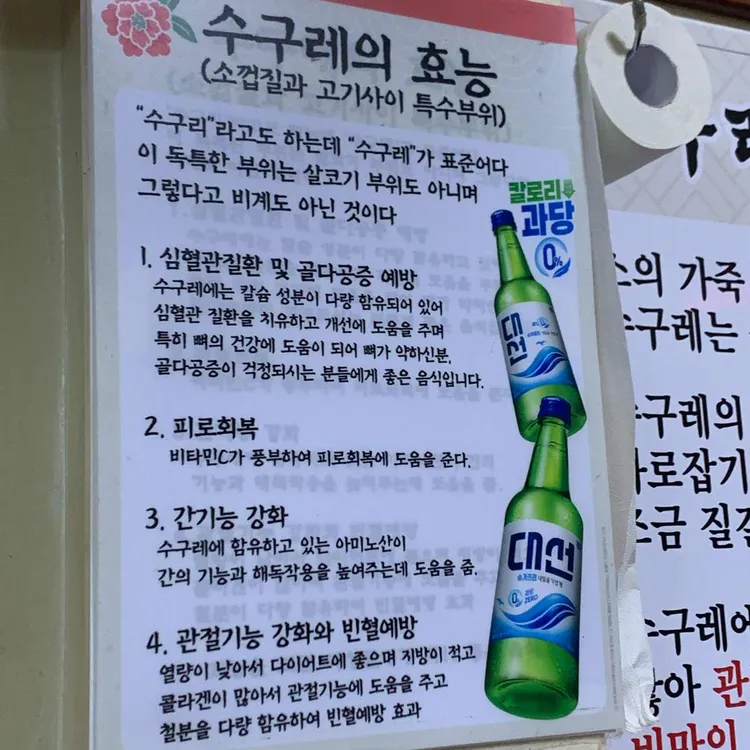 수구레의 효능
(소껍질과 고기사이 특수부위)
"수구리"라고도 하는데 "수구레"가 표준어다
이 독특한 부위는 살코기 부위도 아니며
그렇다고 비계도 아닌 것이다
칼로리
과당
0%
1. 심혈관질환 및 골다공증 예방
수구레에는 칼슘 성분이 다량 함유되어 있어
심혈관 질환을 치유하고 개선에 도움을 주며
특히 뼈의 건강에 도움이 되어 뼈가 약하신분,
골다공증이 걱정되시는 분들에게 좋은 음식입니다.
대선
2. 피로회복
비타민C가 풍부하여 피로회복에 도움을 준다.
3. 간기능 강화
수구레에 함유하고 있는 아미노산이
간의 기능과 해독작용을 높여주는데 도움을 줌.
대선
4. 관절기능 강화와 빈혈예방
열량이 낮아서 다이어트에 좋으며 지방이 적고
콜라겐이 많아서 관절기능에 도움을 주고
철분을 다량 함유하여 빈혈예방 효과
소의 가죽
수구레는
수구레의
바로잡기
조금 질
수구레에
많아 관